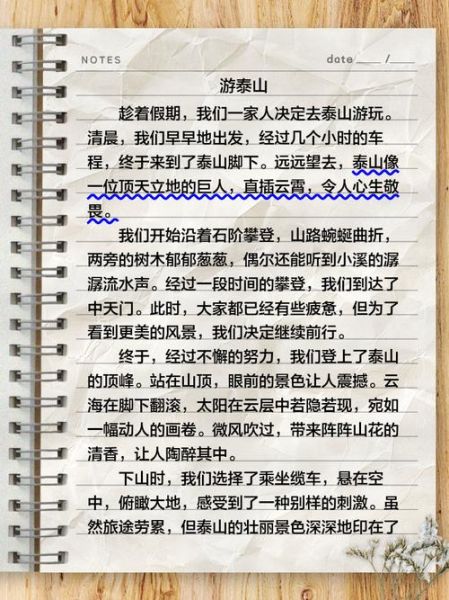 NOTES
date ___ /___
游泰山
趁着假期，我们一家人决定去泰山游玩。
清晨，我们早早地出发，经过几个小时的车
程，终于来到了泰山脚下。远远望去，泰山像
一位顶天立地的巨人，直插云霄，令人心生敬
畏。
我们开始沿着石阶攀登，山路蜿蜒曲折，
两旁的树木郁郁葱葱，偶尔还能听到小溪的潺
潺流水声。经过一段时间的攀登，我们到达了
中天门。此时，大家都已经有些疲惫，但为了
看到更美的风景，我们决定继续前行。
终于，经过不懈的努力，我们登上了泰山
的顶峰。站在山顶，眼前的景色让人震撼。云
海在脚下翻滚，太阳在云层中若隐若现，宛如
一幅动人的画卷。微风吹过，带来阵阵山花的
清香，让人陶醉其中。
下山时，我们选择了乘坐缆车，悬在空
中，俯瞰大地，感受到了一种别样的刺激。虽
然旅途劳累，但泰山的壮丽景色深深地印在了